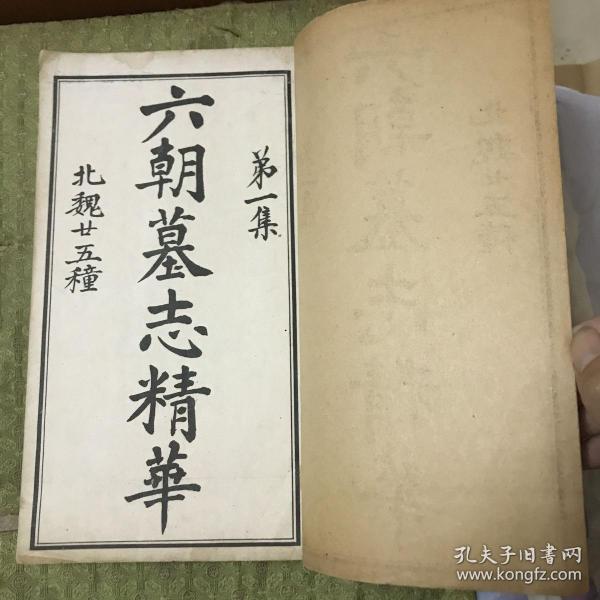 第一集
六朝墓志精華
北魏廿五種
孔夫子旧书网
www.kongfz.com